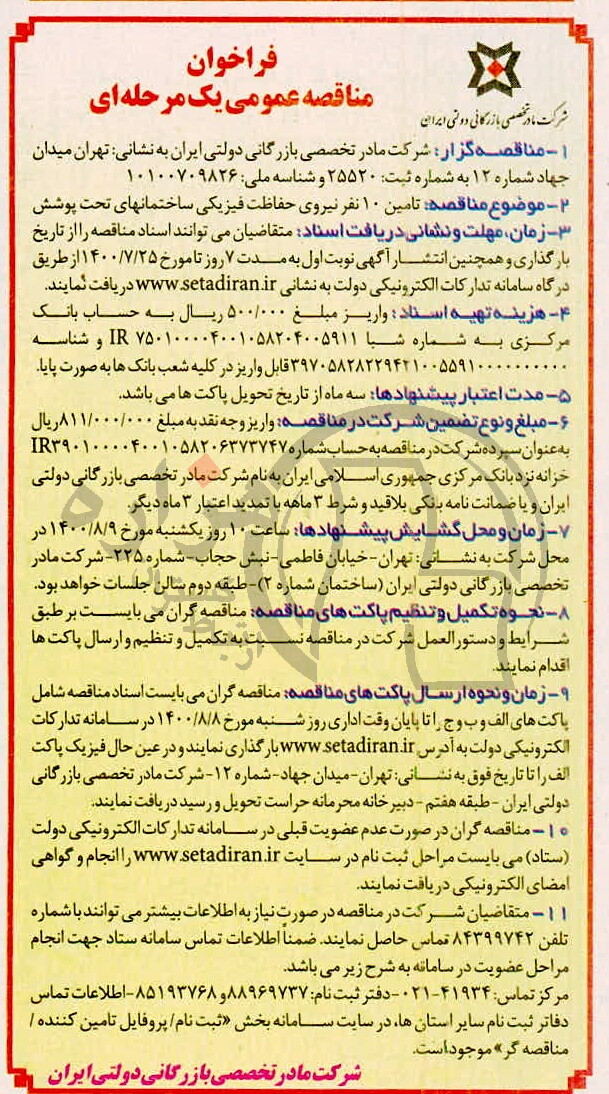 فراخوان
مناقصه عمومی یک مرحله ای
شرکت مادر تخصصی بازرگانی دولتی ایران
۱- مناقصه گزار: شرکت مادر تخصصی بازرگانی دولتی ایران به نشانی: تهران میدان
جهاد شماره ۱۲ به شماره ثبت: ۲۵۵۲۰ و شناسه ملی: ۱۰۱۰۰۷۰۹۸۲۶
۲- موضوع مناقصه: تامین ۱۰ نفر نیروی حفاظت فیزیکی ساختمانهای تحت پوشش
۳- زمان، مهلت و نشانی دریافت اسناد: متقاضیان می توانند اسناد مناقصه را از تاریخ
بارگذاری و همچنین انتشار آگهی نوبت اول به مدت ۷ روز تا مورخ ۱۴۰۰/۷/۲۵ از طریق
درگاه سامانه تدارکات الکترونیکی دولت به نشانی www.setadiran.ir دریافت نمایند.
۴- هزینه تهیه اسناد: واریز مبلغ ۵۰۰/۰۰۰ ریال به حساب بانک
مرکزی به شماره شبا IR ۷۵۰۱۰۰۰۰۴۰۰۱۰۵۸۲۰۴۰۰۵۹۱۱ و شناسه
۳۹۷۰۵۸۲۸۲۲۹۴۲۱۰۰۵۵۹۱۰۰۰۰۰۰۰۰۰۰ قابل واریز در کلیه شعب بانک ها به صورت پایا.
۵- مدت اعتبار پیشنهادها: سه ماه از تاریخ تحویل پاکت ها می باشد.
۶- مبلغ و نوع تضمین شرکت در مناقصه: واریز وجه نقد به مبلغ ۸۱۱/۰۰۰/۰۰۰ ریال
به عنوان سپرده شرکت در مناقصه به حساب شماره IR۳۹۰۱۰۰۰۰۴۰۰۱۰۵۸۲۰۶۳۷۳۷۴۷
خزانه نزد بانک مرکزی جمهوری اسلامی ایران به نام شرکت مادر تخصصی بازرگانی دولتی
ایران و یا ضمانت نامه بانکی بلاقید و شرط ۳ ماهه با تمدید اعتبار ۳ ماه دیگر.
۷- زمان و محل گشایش پیشنهادها: ساعت ۱۰ روز یکشنبه مورخ ۱۴۰۰/۸/۹ در
محل شرکت به نشانی: تهران- خیابان فاطمی- نبش حجاب- شماره ۲۲۵- شرکت مادر
تخصصی بازرگانی دولتی ایران (ساختمان شماره ۲)- طبقه دوم سالن جلسات خواهد بود.
۸- نحوه تکمیل و تنظیم پاکت های مناقصه: مناقصه گران می بایست بر طبق
شرایط و دستورالعمل شرکت در مناقصه نسبت به تکمیل و تنظیم و ارسال پاکت ها
اقدام نمایند.
۹- زمان و نحوه ارسال پاکت های مناقصه: مناقصه گران می بایست اسناد مناقصه شامل
پاکت های الف و ب و ج را تا پایان وقت اداری روز شنبه مورخ ۱۴۰۰/۸/۸ در سامانه تدارکات
الکترونیکی دولت به آدرس www.setadiran.ir بارگذاری نمایند و در عین حال فیزیک پاکت
الف را تا تاریخ فوق به نشانی: تهران- میدان جهاد- شماره ۱۲- شرکت مادر تخصصی بازرگانی
دولتی ایران - طبقه هفتم - دبیرخانه محرمانه حراست تحویل و رسید دریافت نمایند.
۱۰- مناقصه گران در صورت عدم عضویت قبلی در سامانه تدارکات الکترونیکی دولت
(ستاد) می بایست مراحل ثبت نام در سایت www.setadiran.ir را انجام و گواهی
امضای الکترونیکی دریافت نمایند.
۱۱- متقاضیان شرکت در مناقصه در صورت نیاز به اطلاعات بیشتر می توانند با شماره
تلفن ۸۴۳۹۹۷۴۲ تماس حاصل نمایند. ضمناً اطلاعات تماس سامانه ستاد جهت انجام
مراحل عضویت در سامانه به شرح زیر می باشد.
مرکز تماس: ۴۱۹۳۴-۰۲۱- دفتر ثبت نام: ۸۸۹۶۹۷۳۷ و ۸۵۱۹۳۷۶۸- اطلاعات تماس
دفاتر ثبت نام سایر استان ها، در سایت سامانه بخش «ثبت نام/ پروفایل تامین کننده /
مناقصه گر» موجود است.
شرکت مادر تخصصی بازرگانی دولتی ایران